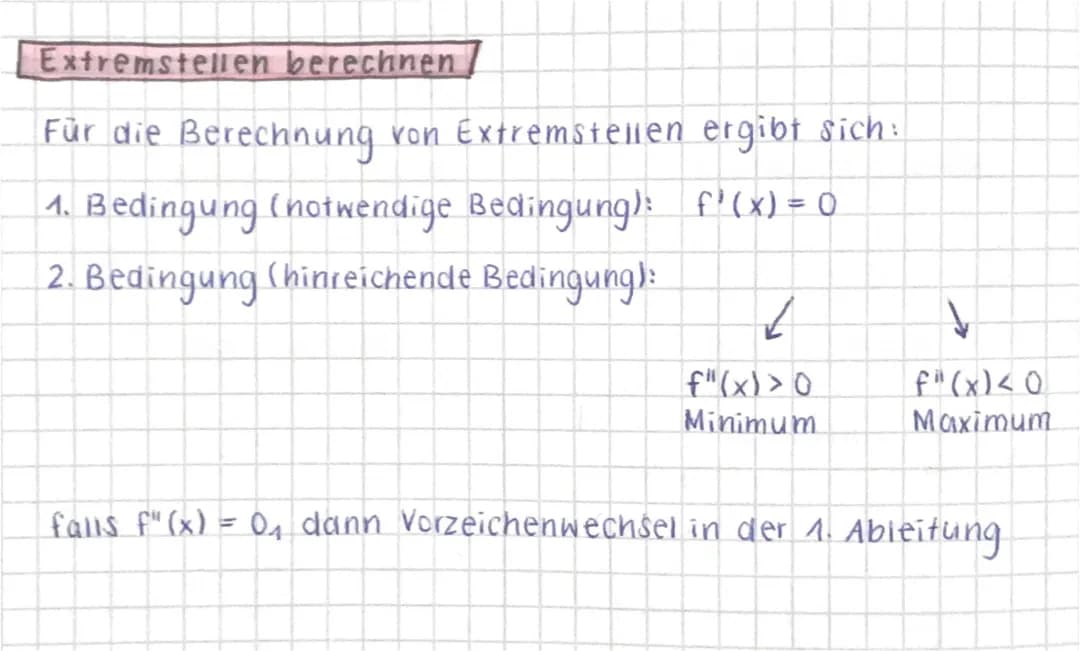 Extremstellen berechnen
Für die Berechnung von Extremstellen ergibt sich:
1. Bedingung (notwendige Bedingung): f'(x) = 0
2. Bedingung (hinreichende Bedingung):
↙ ↘
f"(x) > 0 f"(x) < 0
Minimum Maximum
falls f"(x) = 0, dann Vorzeichenwechsel in der 1. Ableitung